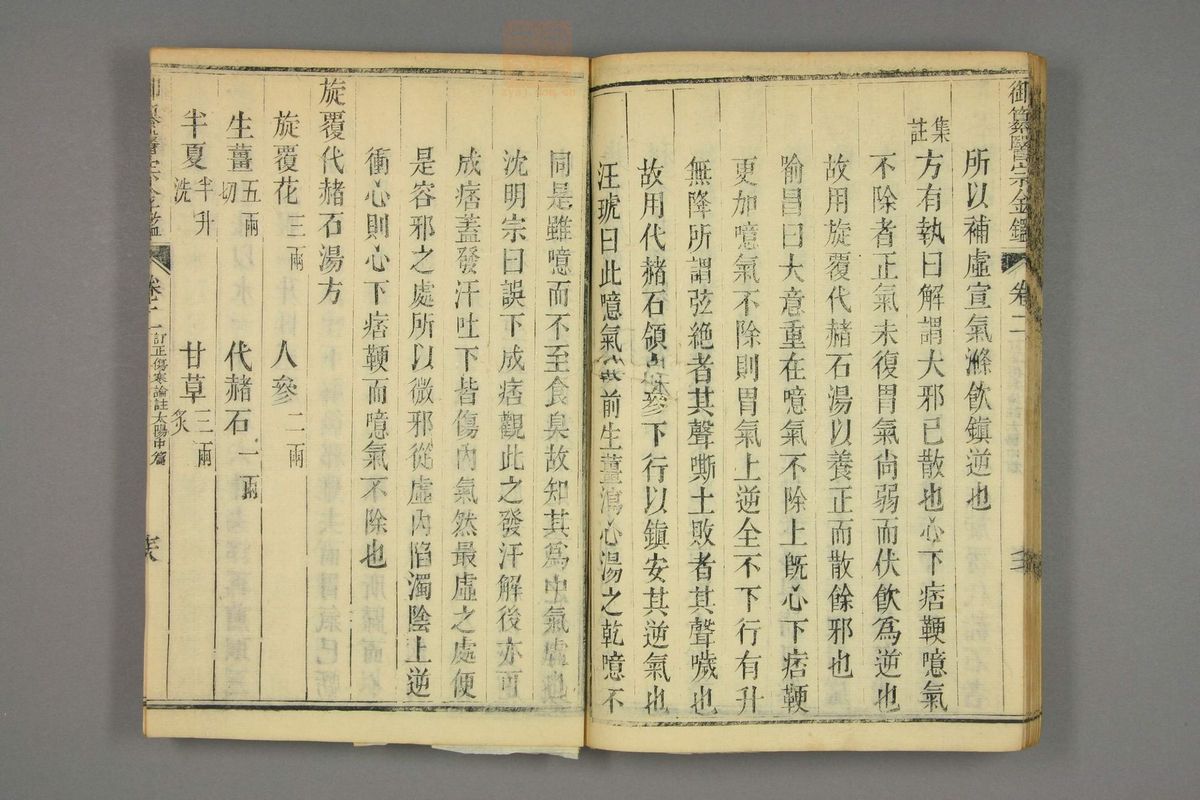 御纂醫宗金鑑 卷二
所以補虛宣氣滌飲鎮逆也
集註 方有執曰解謂大邪已散也心下痞鞕噫氣
不除者正氣未復胃氣尚弱而伏飲為逆也
故用旋覆代赭石湯以養正而散餘邪也
喻昌曰大意重在噫氣不除上既心下痞鞕
更加噫氣不除則胃氣上逆全不下行有升
無降所謂弦絕者其聲嘶土敗者其聲噦也
故用代赭石領人參下行以鎮安其逆氣也
汪琥曰此噫氣前生薑瀉心湯之乾噫不
同是雖噫而不至食臭故知其為中氣虛也
沈明宗曰誤下成痞觀此之發汗解後亦可
成痞蓋發汗吐下皆傷內氣然最虛之處便
是容邪之處所以微邪從虛內陷濁陰上逆
衝心則心下痞鞕而噫氣不除也
旋覆代赭石湯方
旋覆花三兩 人參二兩
生薑五兩切 代赭石一兩
半夏半升洗 甘草三兩炙
醫宗金鑑 卷二 訂正傷寒論註太陽中篇